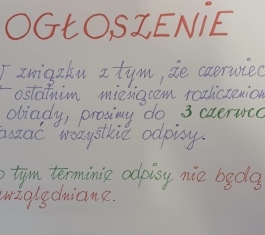 OGŁOSZENIE
związku z tym, że czerwiec
ostatnim miesiącem rozliczeniow
obiady, prosimy do 3 czerwca
aszać wszystkie odpisy.
o tym terminie odpisy nie będą
uwzględniane.